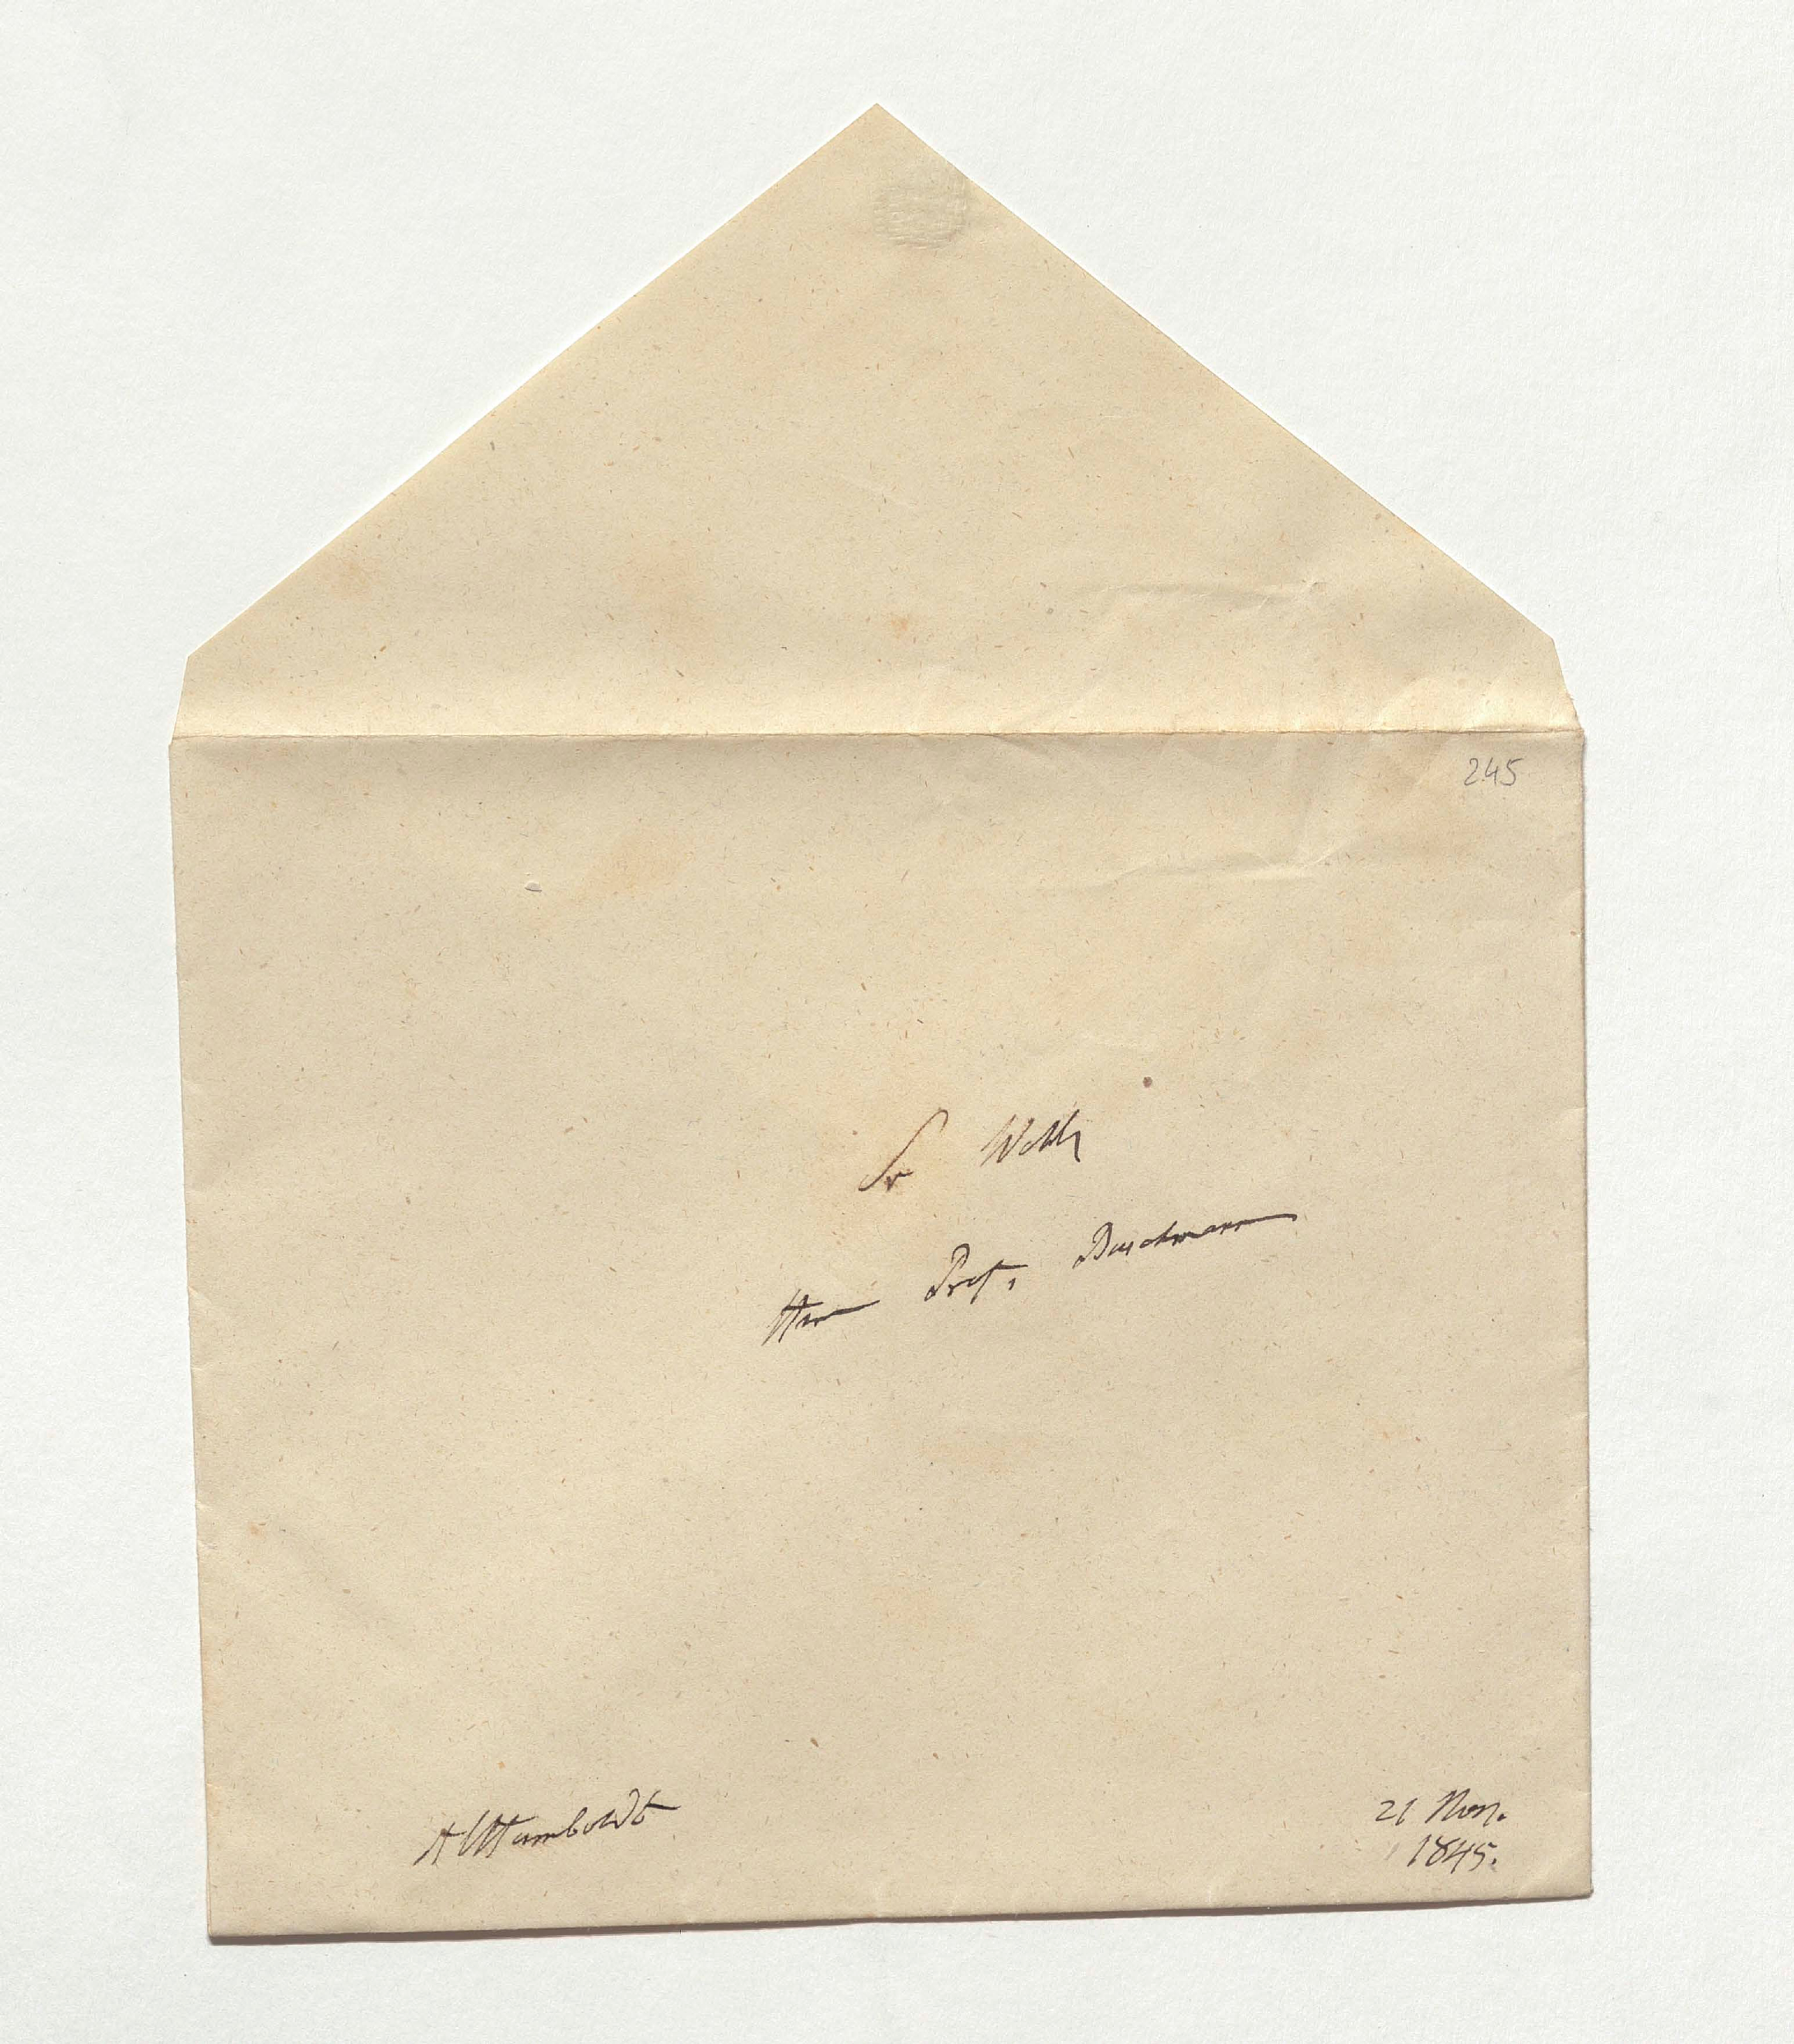 245
Sr Wohl
Herrn Prof. Buschmann
AlHumboldt
21 Nov.
1845.